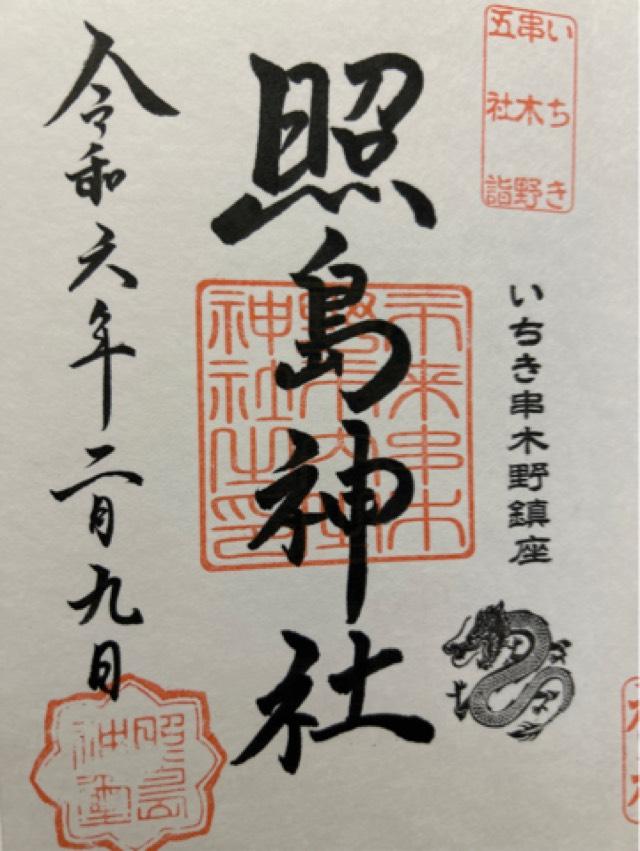 いちき
串木野
五社詣
いちき串木野鎮座
照島神社
令和六年二月九日